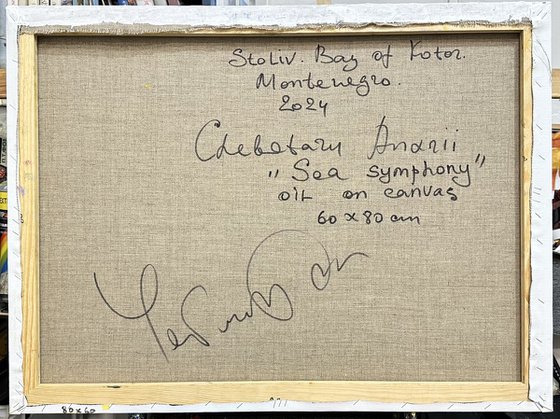 Stoliv. Bay of Kotor.
Montenegro.
2024
Chebotaru Andrii
„Sea symphony"
oil on canvas
60 x 80 cm
80x60